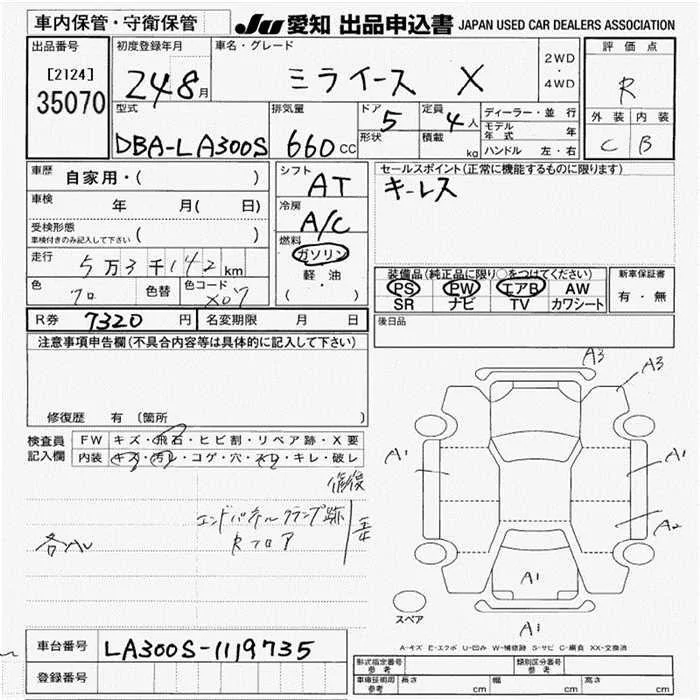 車内保管・守衛保管
JU 愛知 出品申込書 JAPAN USED CAR DEALERS ASSOCIATION
出品番号
[2124]
35070
初度登録年月
24 8月
車名・グレード
ミライース X
2WD
・
4WD
評価点
R
外装 内装
C B
型式
DBA-LA300S
排気量
660 cc
ドア 5
形状
定員 4人
積載 kg
ディーラー・並行
モデル年式 年
ハンドル 左・右
車歴 自家用・( )
車検 年 月( 日)
受検形態
車検付きのみ記入して下さい ( )
走行 5万3千142km
色 クロ 色替 色コード X07
シフト AT
冷房 A/C
燃料
ガソリン
軽・油
( ・ )
セールスポイント(正常に機能するものに限ります)
キーレス
装備品(純正品に限り○をつけてください)
PS PW エアB AW
SR ナビ TV カワシート
新車保証書
有・無
R券 7320 円 名変期限 月 日
後日品
注意事項申告欄(不具合内容等は具体的に記入して下さい)
修復歴 有 〔箇所 〕
検査員記入欄
FW キズ・飛石・ヒビ割・リペア跡・X要
内装 キズ・汚レ・コゲ・穴・スレ・キレ・破レ
修復
エンドパネルクランプ跡
Rフロア
各ル
A3
A3
A1
A1
A2
A1
A1
スペア
A-キズ E-エクボ U-凹み W-補修跡 S-サビ C-腐食 XX-交換済
車台番号 LA300S-1119735
登録番号
形式指定番号 参考
類別区分番号 参考
車検証明用 参考 長さ cm 幅 cm 高さ cm